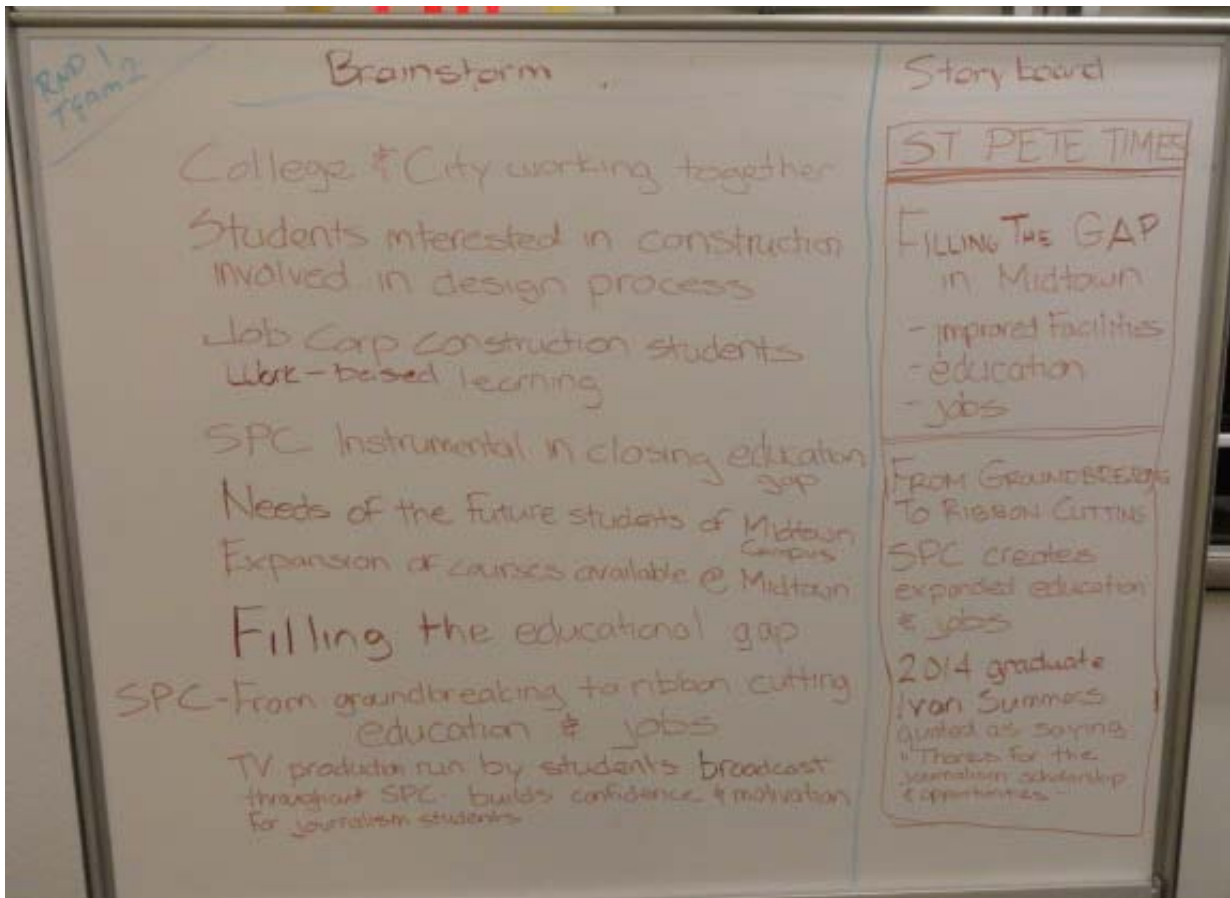 RND 1
Team 2
Brainstorm
College & City working together
Students interested in construction
involved in design process
Job Corp construction students
Work-based learning
SPC Instrumental in closing education
gap
Needs of the future students of Midtown
Campus
Expansion of courses available @ Midtown
Filling the educational gap
SPC-From groundbreaking to ribbon cutting
education & jobs
TV production run by students broadcast
throughout SPC builds confidence & motivation
for journalism students
Story board
ST PETE TIMES
FILLING THE GAP
in Midtown
- improved Facilities
- education
- jobs
FROM
TO RIBBON CUTTING
SPC creates
expanded education
& jobs
2014 graduate
Ivan Summers
quoted as saying
"Thanks for the
journalism scholarship
& opportunities